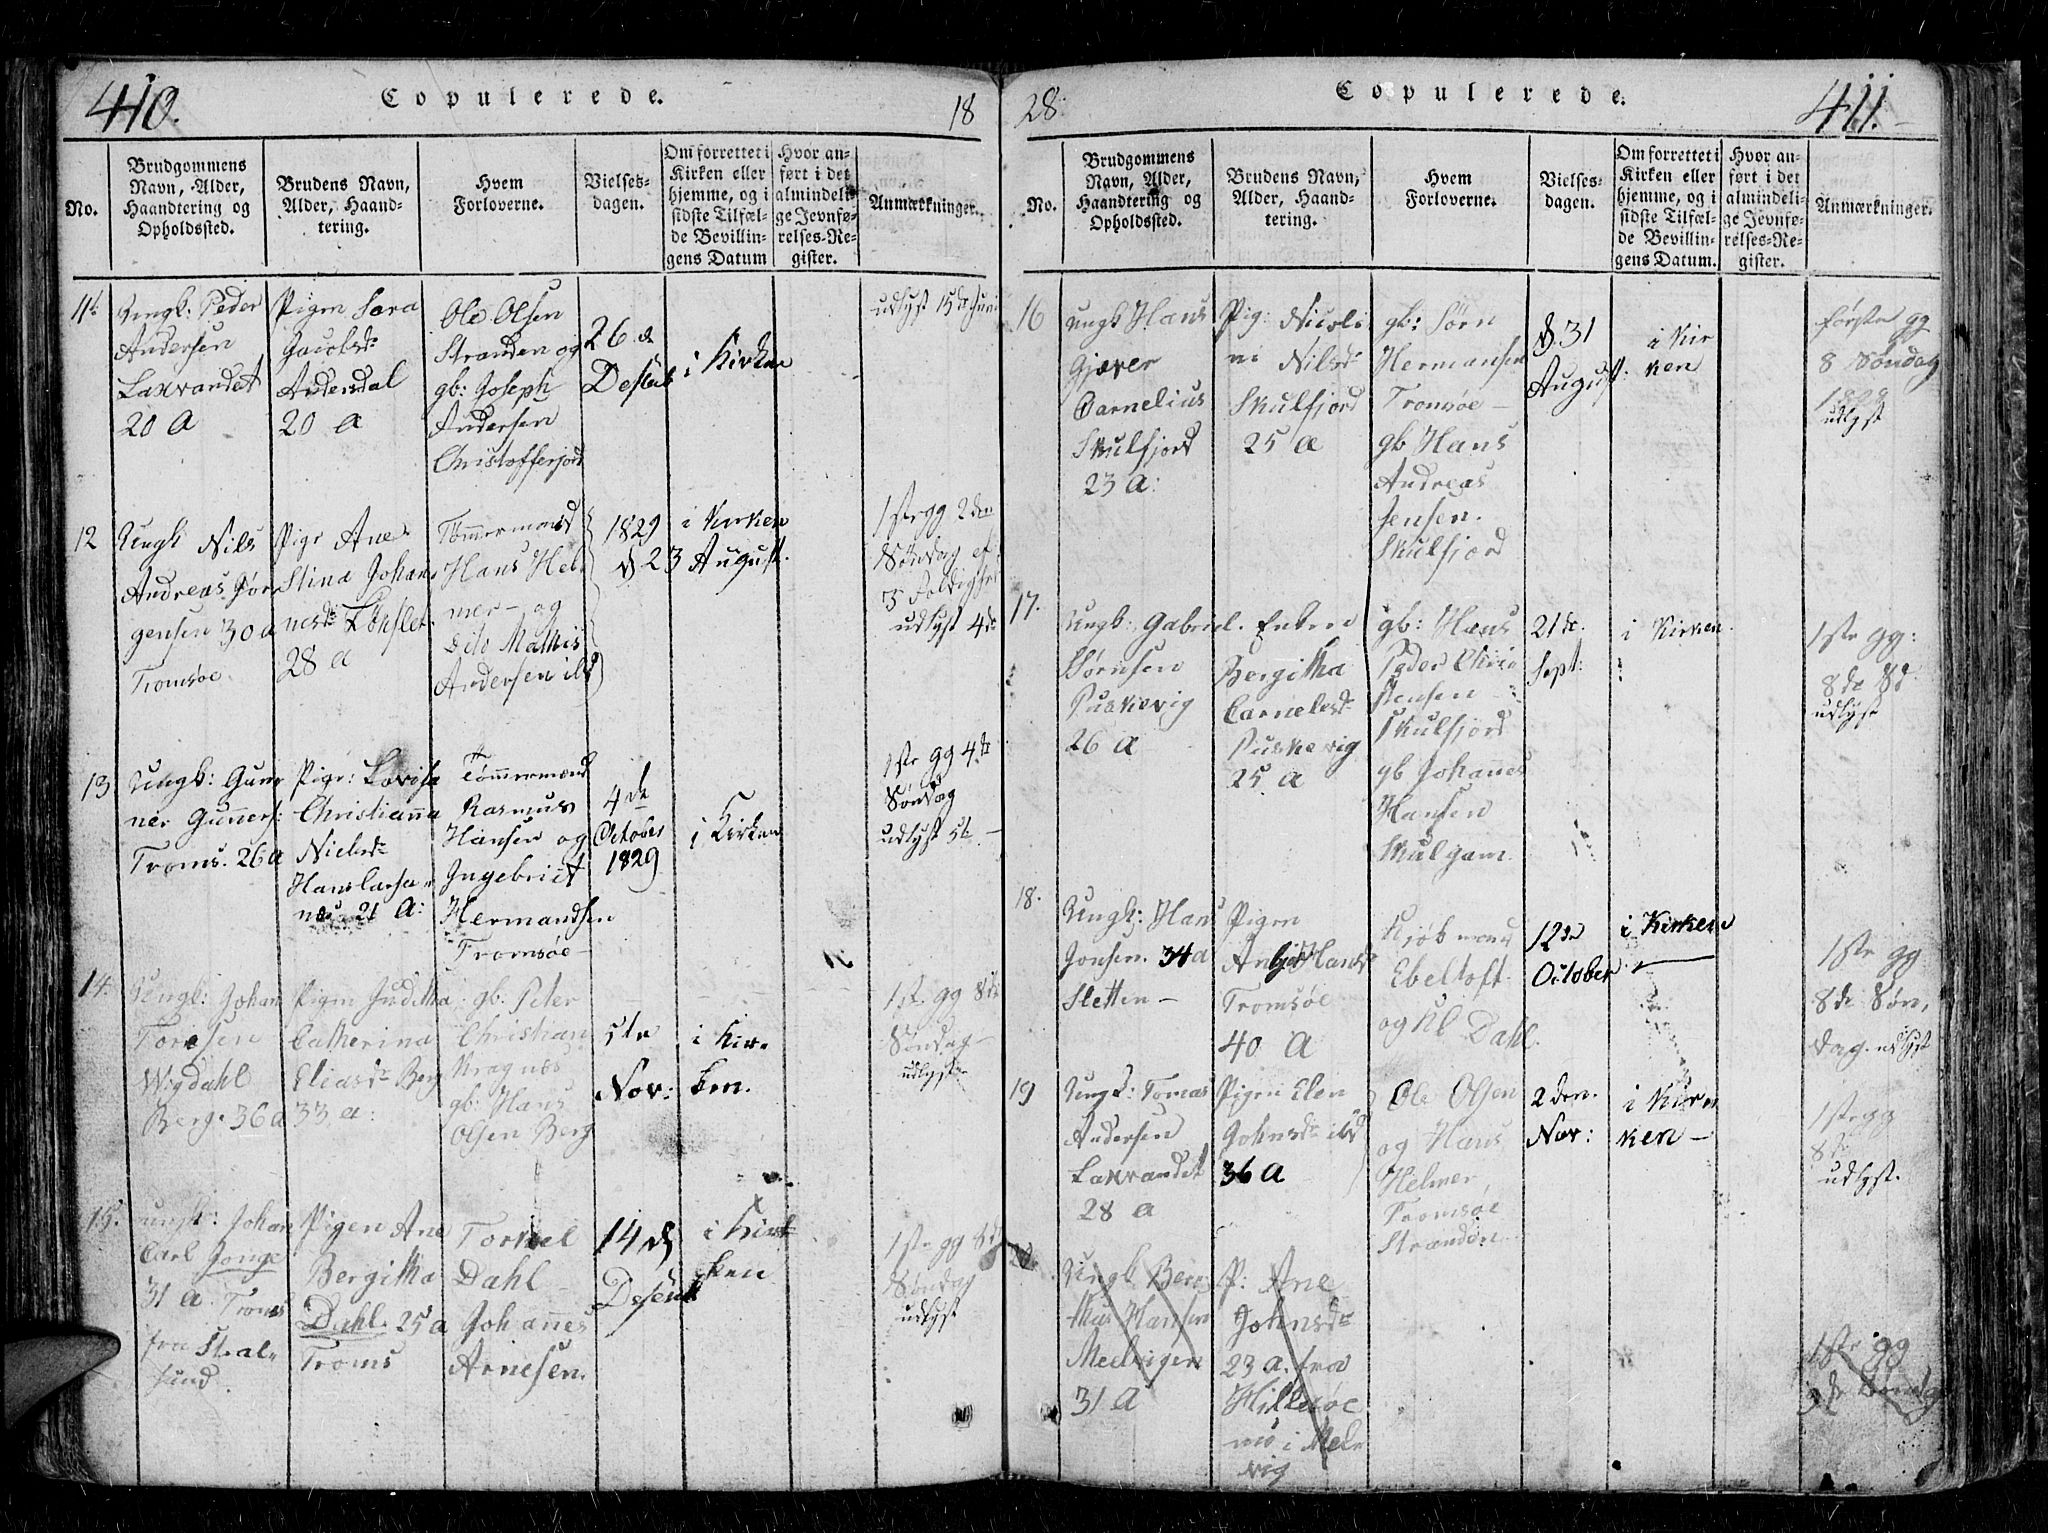 410.
Copulerede.
18
No.
Brudgommens
Navn, Alder,
Haandtering og
Opholdssted.
Brudens Navn,
Alder, Haand-
tering.
Hvem
Forloverne.
Vielses-
dagen.
Om forrettet i
Kirken eller
hjemme, og i
sidste Tilfæl-
de Bevillin-
gens Datum
Hvor an-
ført i det
almindeli-
ge Jevnfø-
relses-Re-
gister.
Anmærkninger.
11.
Ungk: Peder
Andersen
Laxvandet
20 A
Pigen Sara
Jacobsdr
Andersdal
20 a
Ole Olsen
Stranden og
gb: Joseph
Andersen
Christofferjord
26 de
Desebr
i Kirken
udlyst 15de Juni
12
Ungk Nils
Andreas Jør
gensen 30 a
Tromsøe
Pige Ane
Stina Johan
nesdr
28 a
Tømmermand
Hans Hel
mer - og
Mathis
Andersen ibd
1829
d 23 August.
i Kirken
1ste gg 2den
Søndag ef
3 foldighed
udlyst 4de
13
Ungk: Gun
ner Gunners:
Troms. 26 a
Pige: Lovise
Christianna
Nielsdr
Hanslarsa
næs 21 A:
Tømmermand
Rasmus
Hansen og
Ingebrict
Hermandsen
Tromsøe
4 de
October
1829
i Kirken
1ste gg 4de
Søndag
udlyst 5te
14.
Ungk: Johan
Toresen
Wigdahl
Berg. 36 a
Pigen Juditha
Catherina
Eliasdr Berg
33 a:
gb: Peter
Christian
Kragnæs
gb: Hans
Olsen Berg
5te
Nov:
i Kir-
ken.
1ste gg 8de
Søndag
udlyst
15.
ungk: Johan
Carl Jonge
31 a. Troms
fra Stral-
sund.
Pigen Ane
Bergitha
Dahl. 25 a
Troms
Torkel
Dahl
Johannes
Arnesen.
14 de
Desebr
i Kir
ken
1ste gg 8de
Søndag
udlyst
28.
Copulerede.
411.
No.
Brudgommens
Navn, Alder,
Haandtering og
Opholdssted.
Brudens Navn,
Alder, Haand-
tering.
Hvem
Forloverne.
Vielses-
dagen.
Om forrettet i
Kirken eller
hjemme, og i
sidste Tilfæl-
de Bevillin-
gens Datum.
Hvor an-
ført i det
almindeli-
ge Jevnfø-
relses-Re-
gister.
Anmærkninger.
16
Ungk Hans
Gjæver
Carnelius
Skulfjord
23 A:
Pig: Nicoli
ne Nilsdr
Skulfjord
25 a
gb: Sørn
Hermansen
Tromsøe -
gb Hans
Andreas
Jensen.
Skulfjord
d. 31
August:
i Kir
ken
første gg
8 Søndag
1828
udlyst
17.
Ungk: Gabriel
Sørnsen
Puskevig
26 a
Enken
Bergitha
Carnelsdr
Puskevig
25 a
gb: Hans
Peder Chri
stensen
Skulfjord
gb Johannes
Hansen
Skulgam
21 de.
Sept:
i Kirken.
1ste gg:
8de Sd
udlyst
18.
Ungk: Hans
Jonsen. 34 a
Sletten -
Pigen
Hansdr
Tromsøe
40 A
Kjøbmand
Ebeltoft
og Kl Dahl.
12te
October.
i Kirken
1ste gg
8de Søn,
dag. udlyst
19
Ungk: Tomas
Andersen
Laxvandet
28 a
Pigen Elen
Johnsdr ibd
36 A
Ole Olsen
og Hans
Helmer,
Tromsøe
Stranden
2den.
Nov:
i Kir
ken -
1ste gg
8de
udlyst.
Ungk Beren
thus Hansen
Meelvigen
31 A
P: Ane
Johnsdr
23 a. fra
Hillesøe
nu i Mel
vig
1ste gg